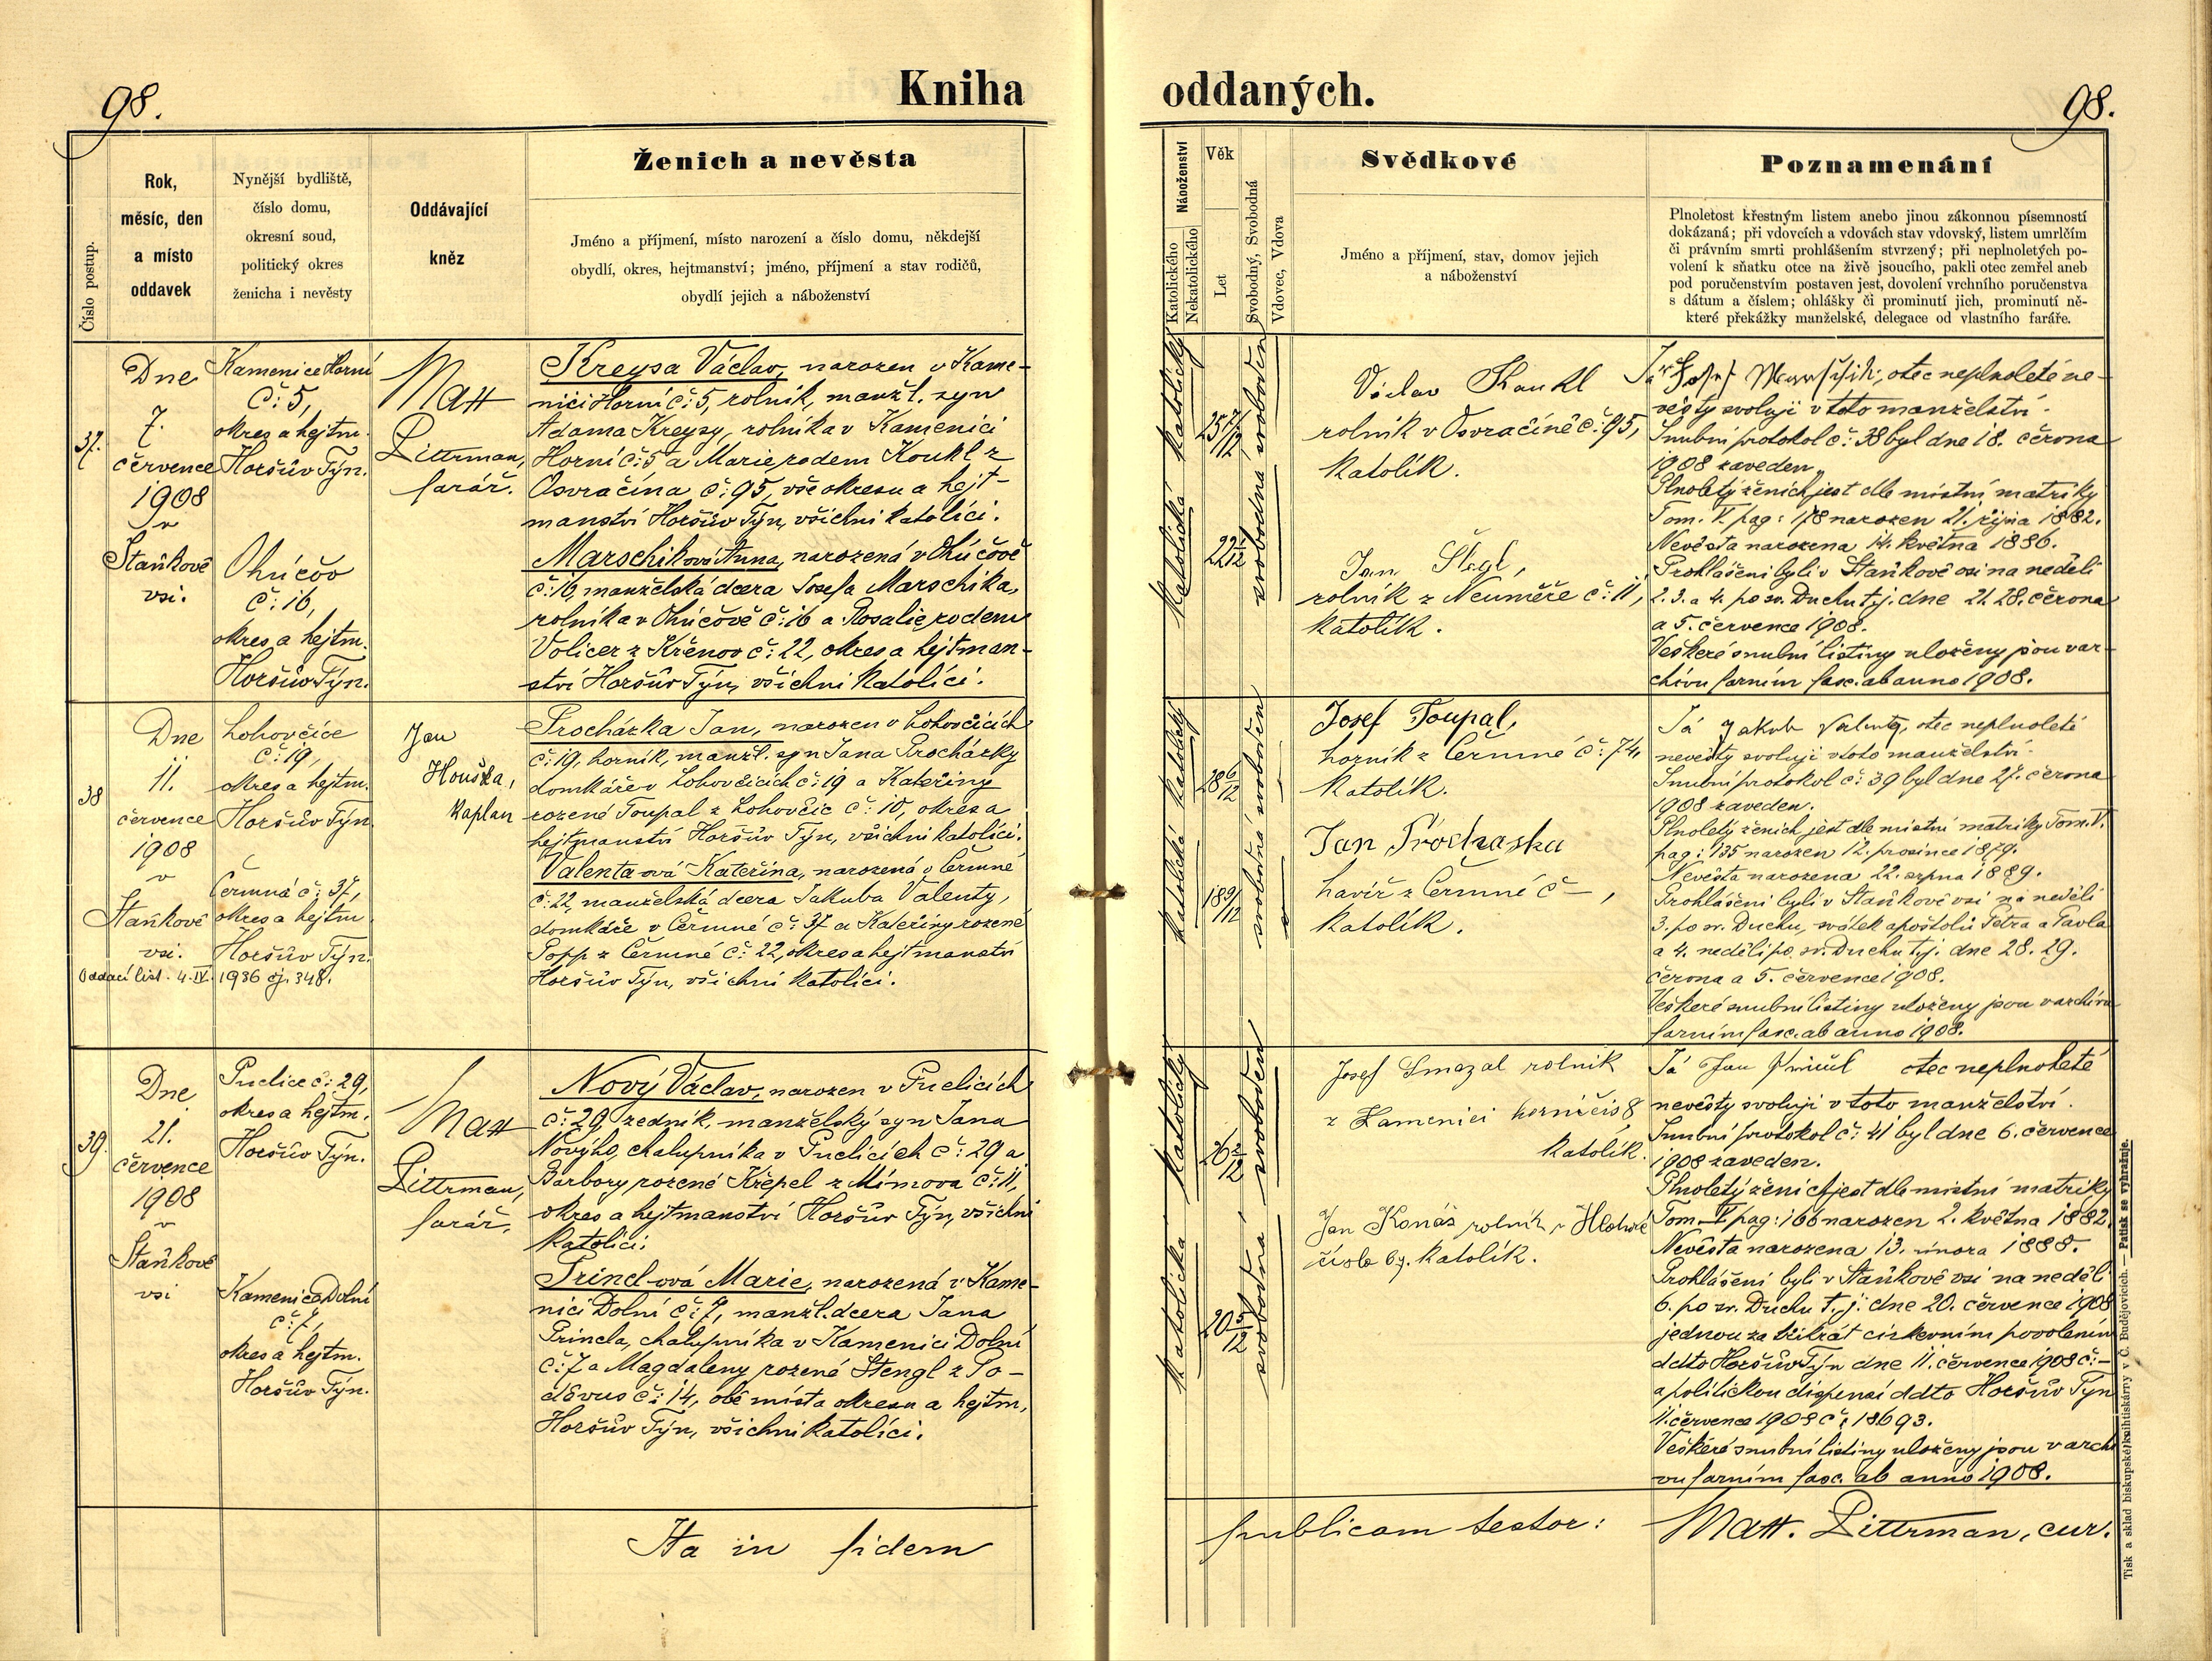 98.
Kniha
Číslo postup.
Rok,
měsíc, den
a místo
oddavek
Nynější bydliště,
číslo domu,
okresní soud,
politický okres
ženicha i nevěsty
Oddávající
kněz
Ženich a nevěsta
Jméno a příjmení, místo narození a číslo domu, někdejší
obydlí, okres, hejtmanství; jméno, příjmení a stav rodičů,
obydlí jejich a náboženství
37.
Dne
7.
července
1908
v
Staňkově
vsi.
Kamenice Horní
č: 5,
okres a hejtm.
Horšův Týn.
Ohúčov
č: 16,
okres a hejtm.
Horšův Týn.
Matt
Littrman,
farář.
Kreysa Václav, narozen v Kame-
nici Horní č: 5, rolník, manžl. syn
Adama Kreysy, rolníka v Kamenici
Horní č: 5 a Marie rodem Koukl z
Osvračína č: 95, vše okresu a hejt-
manství Horšův Týn, všichni katolíci.
Marschiková Anna, narozená v Ohúčově
č: 16, manželská dcera Josefa Marschika,
rolníka v Ohúčově č: 16 a Rosalie rodem
Volicer z Křenov č: 22, okres a hejtman-
ství Horšův Týn, všichni katolíci.
38
Dne
11.
července
1908
v
Staňkově
vsi.
Oddací list. 4. IV. 1936 čj. 348.
Lohovčice
č: 19,
okres a hejtm.
Horšův Týn.
Čermná č: 37,
okres a hejtm.
Horšův Týn.
Jan
Houška,
kaplan
Procházka Jan, narozen v Lohovčicích
č: 19, horník, manžl. syn Jana Procházky
domkáře v Lohovčicích č: 19 a Kateřiny
rozené Toupal z Lohovčic č: 10, okres a
hejtmanství Horšův Týn, všichni katolíci.
Valenta-ová Kateřina, narozená v Čermné
č: 22, manželská dcera Jakuba Valenty,
domkáře v Čermné č: 37 a Kateřiny rozené
Popp z Čermné č: 22, okres a hejtmanství
Horšův Týn, všichni katolíci.
39.
Dne
21.
července
1908
v
Staňkově
vsi
Puclice č: 29,
okres a hejtm.
Horšův Týn.
Kamenice Dolní
č: 7,
okres a hejtm.
Horšův Týn.
Matt
Littrman,
farář.
Nový Václav, narozen v Puclicích
č: 29, zedník, manželský syn Jana
Nového, chalupníka v Puclicích č: 29 a
Barbory rozené Křepel z Mímova č: 11,
okres a hejtmanství Horšův Týn, všichni
katolíci.
Princl-ová Marie, narozená v Kame-
nici Dolní č: 7, manžl. dcera Jana
Princla, chalupníka v Kamenici Dolní
č: 7 a Magdaleny rozené Stengl z Po-
děvus č: 14, obě místa okresu a hejtm,
Horšův Týn, všichni katolíci.
Ita in fidem
oddaných.
98.
Náboženství
Katolického
Nekatolického
Věk
Let
Svobodný, Svobodná
Vdovec, Vdova
Svědkové
Jméno a příjmení, stav, domov jejich
a náboženství
Poznamenání
Plnoletost křestným listem anebo jinou zákonnou písemností
dokázaná; při vdovcích a vdovách stav vdovský, listem umrlčím
či právním smrti prohlášením stvrzený; při neplnoletých po-
volení k sňatku otce na živě jsoucího, pakli otec zemřel aneb
pod poručenstvím postaven jest, dovolení vrchního poručenstva
s dátum a číslem; ohlášky či prominutí jich, prominutí ně-
které překážky manželské, delegace od vlastního faráře.
katolický
katolická
25 7/12
22 2/12
svoboden
svobodna
Václav Koukl
rolník v Osvračíně č: 95,
katolík.
Jan Šlegl,
rolník z Neuměře č: 11,
katolík.
Já Josef Marschik, otec neplnoleté ne-
věsty svoluji v toto manželství.
Snubní protokol č: 38 byl dne 18. června
1908 zaveden.
Plnoletý ženich jest dle místní matriky
Tom. V. pag: 178 narozen 21. října 1882.
Nevěsta narozena 14. května 1886.
Prohlášeni byli v Staňkově vsi na neděli
2. 3. a 4. po sv. Duchu tj. dne 21. 28. června
a 5. července 1908.
Veškeré snubní listiny uloženy jsou v ar-
chivu farním fasc. ab anno 1908.
katolický
katolická
28 6/12
18 9/12
svoboden
svobodná
Josef Toupal,
horník z Čermné č: 74,
katolík.
Jan Prochaska
havíř z Čermné č –,
katolík.
Já Jakub Valenta, otec neplnoleté
nevěsty svoluji v toto manželství.
Snubní protokol č: 39 byl dne 27. června
1908 zaveden.
Plnoletý ženich jest dle místní matriky Tom. V.
pag: 135 narozen 12. prosince 1879.
Nevěsta narozena 22. srpna 1889.
Prohlášeni byli v Staňkově vsi na neděli
3. po sv. Duchu, svátek apoštolů Petra a Pavla
a 4. neděli po sv. Duchu tj. dne 28. 29.
června a 5. července 1908.
Veškeré snubní listiny uloženy jsou v archivu
farním fasc. ab anno 1908.
katolický
katolická
26 2/12
20 5/12
svoboden
svobodná
Josef Smazal rolník
z Kamenici horní čis 8
katolík.
Jan Konář rolník v Hlohové
číslo 69. katolík.
Já Jan Princl otec neplnoleté
nevěsty svoluji v toto manželství.
Snubní protokol č: 41 byl dne 6. července
1908 zaveden.
Plnoletý ženich jest dle místní matriky
Tom. V. pag: 166 narozen 2. května 1882.
Nevěsta narozena 13. února 1888.
Prohlášeni byli v Staňkově vsi na neděli
6. po sv. Duchu t. j. dne 20. července 1908
jednou za třikrát církevním povolením
ddto Horšův Týn dne 11. července 1908 č: –
a politickou dispensí ddto Horšův Týn
11. července 1908 č: 18693.
Veškeré snubní listiny uloženy jsou v archi-
vu farním fasc. ab anno 1908.
publicam testor:
Matt. Littrman, cur.
Tisk a sklad biskupské knihtiskárny v Č. Budějovicích. — Patisk se vyhražuje.